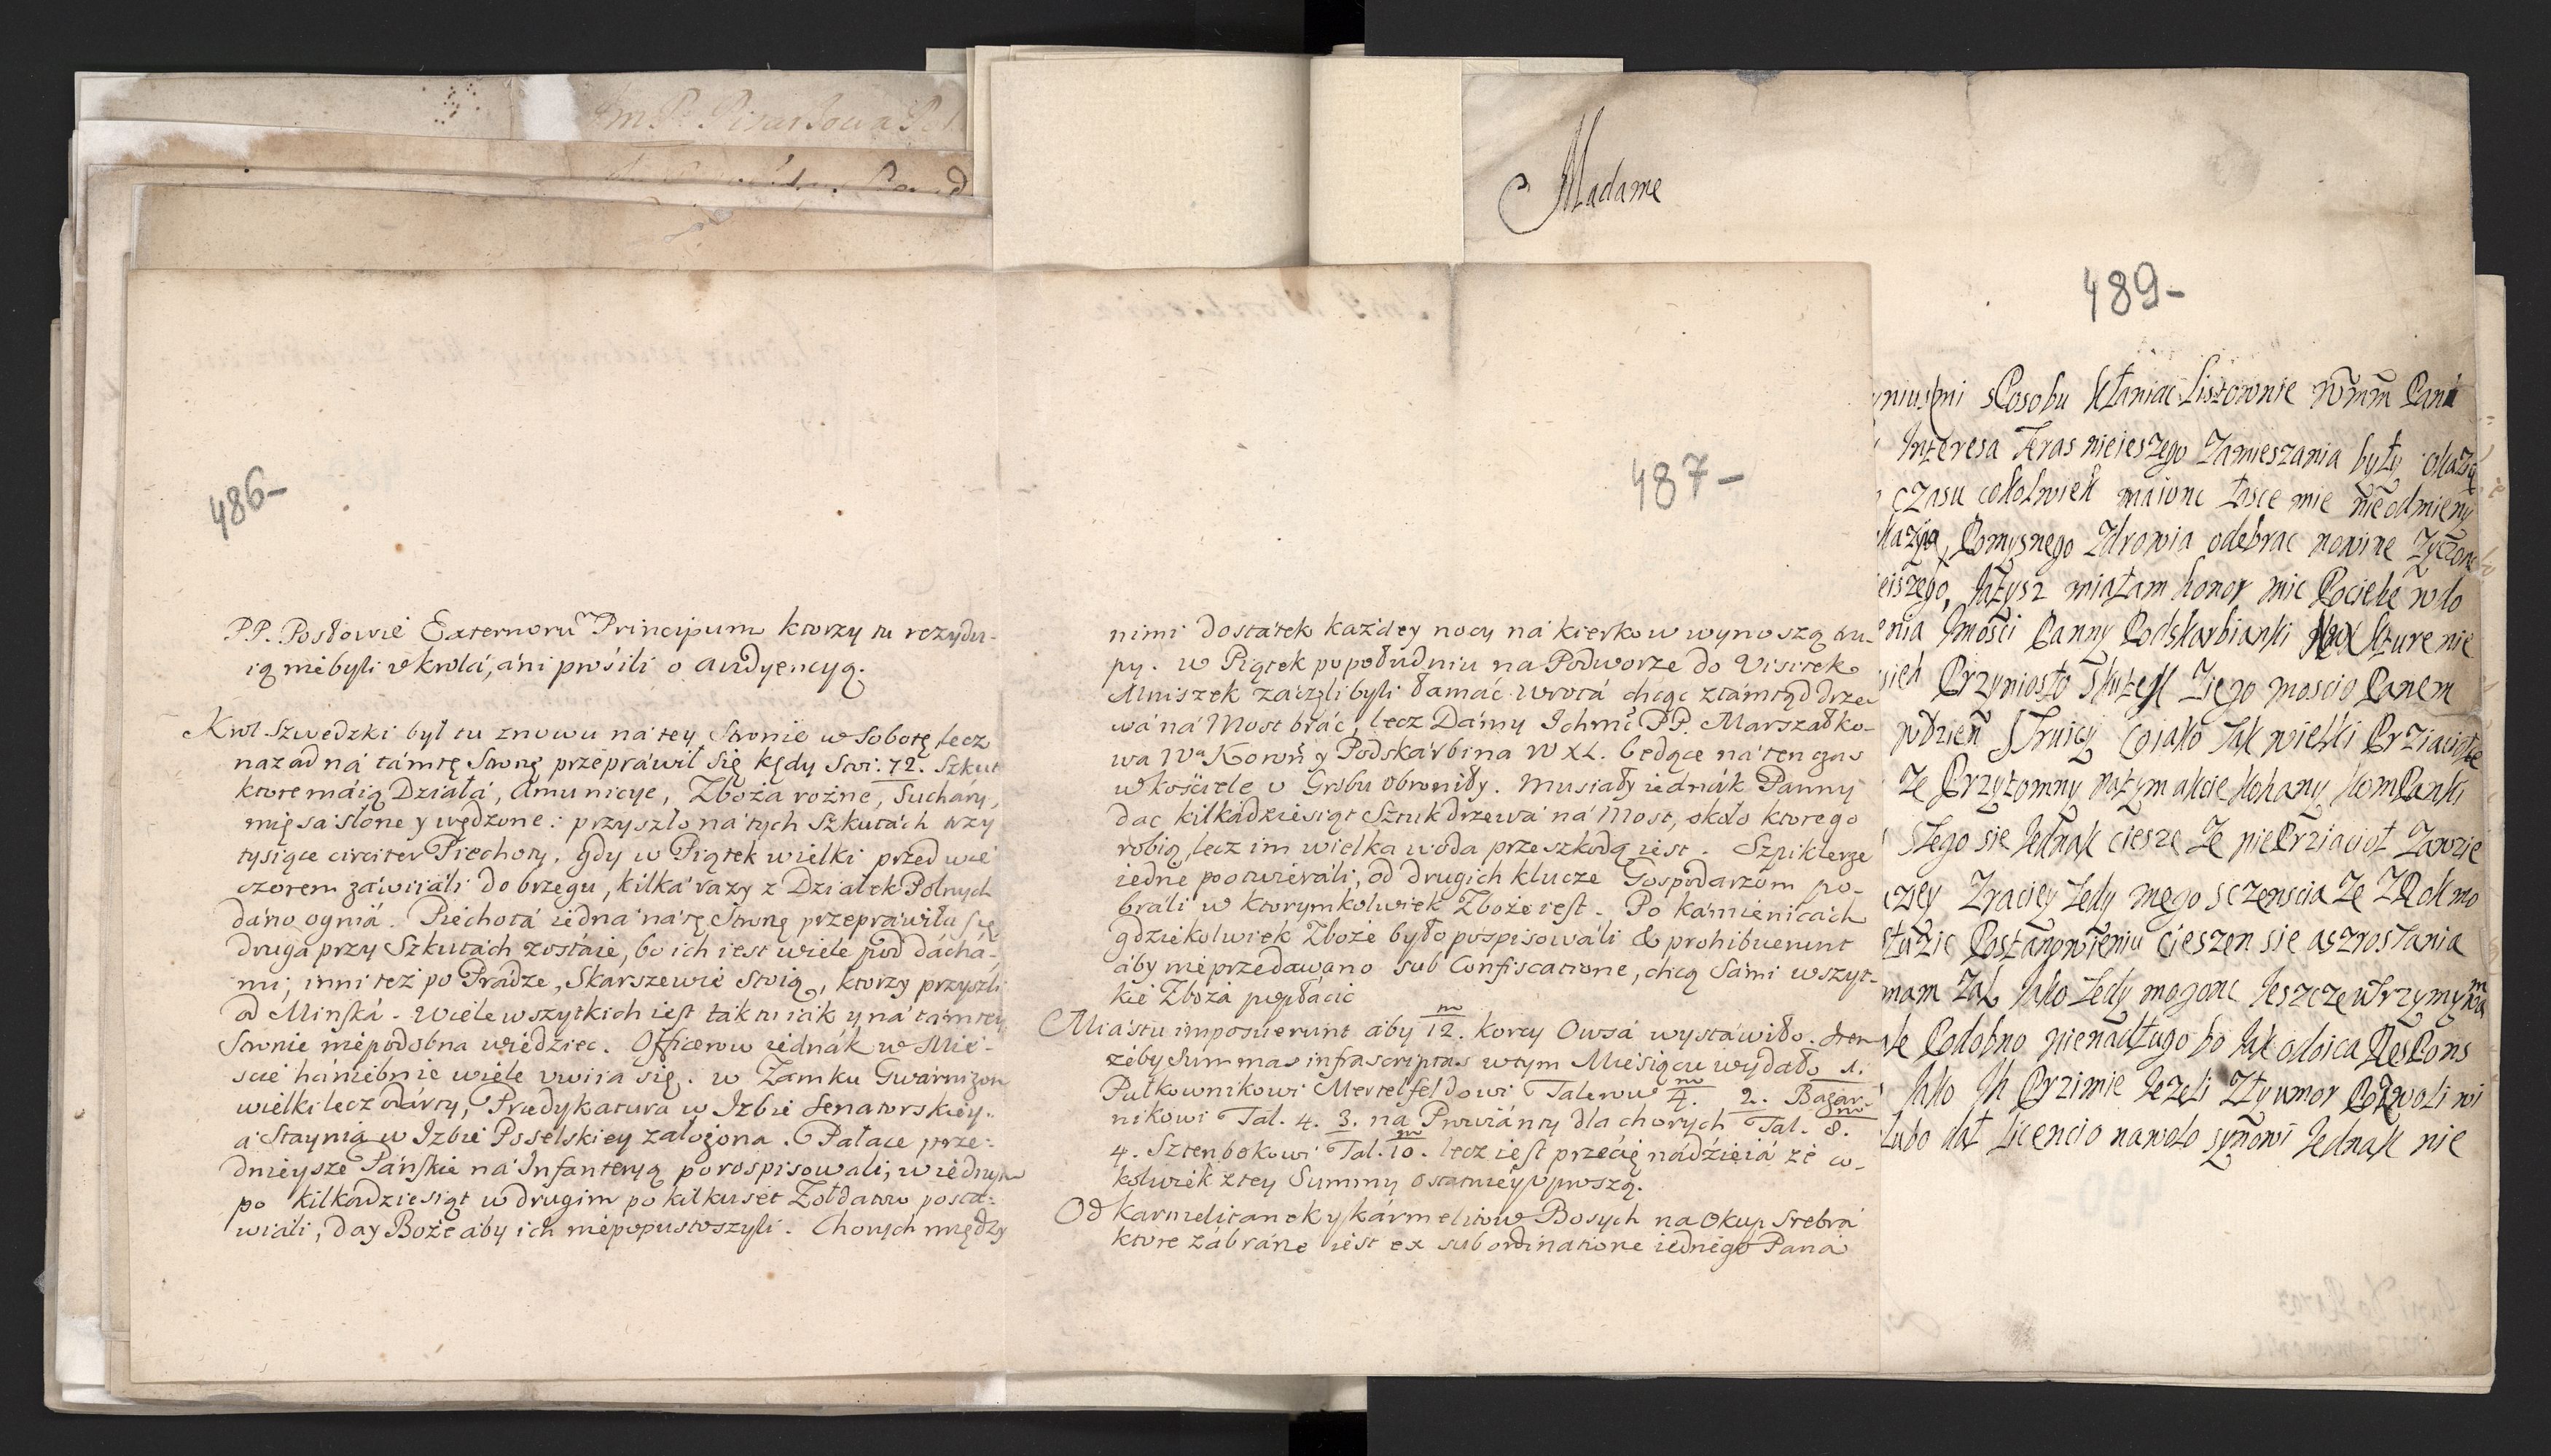 486-
PP. Posłowie Externorũ Principum ktorzy tu rezydu-
ią niebyli v krolá, áni prosili o audyencyą.
Krol Szwedzki był tu znowu ná tey stronie w Sobotę lecz
nazad ná támtę stronę przepráwił się kędy stoi. 72. Szkut
ktore máią Działá, Amunicye, Zboża rożne, Suchary,
mięsa słone y wędzone: przyszło na tych Szkutách trzy
tysiące circiter Piechoty, gdy w Piątek wielki przed wie
czorem záwiiáli do brzegu, kilká razy z Działek Polnych
dáno ogniá. Piechotá iedna ná tę stronę przepráwiła się
druga przy Szkutách zostáie, bo ich iest wiele pod dáchá-
mi, inni też po Prádze, Skarszewie stoią, ktorzy przyszli
od Minská. Wiele wszytkich iest ták tu iák y ná támtey
stronie niepodobna wiedziec. Officerow iednák w Mie-
scie hániebnie wiele vwiia się. w Zamku Gwarnizon
wielki lecz otwárty, Prędykatura w Izbie Senatorskiey.
á Staynią w Izbie Poselskiey założona. Pałace prze-
dnieysze Páńskie ná Infanteryą porospisowali, w iednym
po kilkadziesiąt w drugim po kilkuset Zołdatow posta-
wiáli, day Boże aby ich niepopustoszyli. Chorych między
487-
nimi dostátek każdey nocy ná kierkow wynoszą tru-
py. w Piątek popołudniu na Podworze do Visitek
Mniszek zaczęli byli łamáć wrotá chcąc ztámtąd drze
wá ná Most bráć, lecz Dámy Ichmć PP. Marszałko-
wa Wa Koroń y Podskárbina W XL. będące ná ten czas
w kościele v Grobu obroniły. Musiały iednák Panny
dac kilkádziesiąt Sztuk drzewá ná Most, około ktorego
robią, lecz im wielka woda przeszkodą iest. Szpiklerze
iedne pootwieráli, od drugich klucze Gospodarzom po-
bráli w ktorymkolwiek Zboże iest. Po kámienicách
gdziekolwiek Zboże było pospisowáli & prohibuerunt
áby nie przedawano sub Confiscatione, chcą sámi wszyt-
kie Zboża popłácic
Miástu imposuerunt áby 12. m korcy Owsá wystáwiło. Item
żeby Summas infrascriptas w tym Miesiącu wydáło 1.
Pułkownikowi Mertelfeldowi Talerow 4. m 2. Bagaż-
nikowi Tal. 4. 3. ná Prowiánty dla chorych Tal. 8. m
4. Sztenbokowi Tal. 10. m lecz iest przecię nádzieiá że co-
kolwiek z tey Summy ostatniey vproszą.
Od Karmelitanek y kármelitow Bosych na okup srebrá
ktore zábráne iest ex subordinatione iednego Paná
Madame
489-
sposobu kłaniac Listownie Wmm Pani
Interesa Teras nieieszego Zamieszania były okazią
czasu cokolwiek maionc Łasce mie nieodmieny
Pomysnego Zdrowia odebrac nowine Zyczone
miałam honor mic Pociehe wdo
Jmosci Panny Podskarbianki kture nie
Przyniosło skutek Ziego moscio Panem
Coiako tak wielki Prziaciołke
Ze Przytomny natym akcie kohany kompanki
stego sie Jednak ciesze Ze nieprziacioł Zawzie
Zraciey Tedy mego sczenscia Ze
Postanowieniu cieszen sie aszrostania
mam Zal Jako Tedy mogonc Jescze
Podobno nienadługo bo Jak odbica Respons
Jako Ih Przimie Jezeli Zły umor Pozwoli
Lubo dał Licencio nawolo synowi Jednak nie